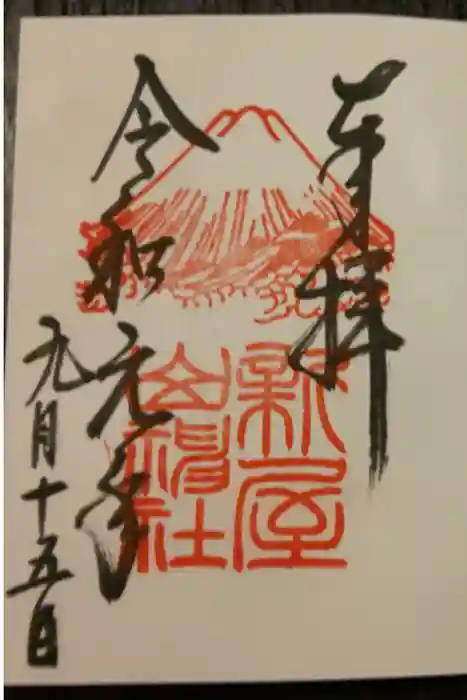 奉拝
新屋
山神社
令和元年
九月十五日